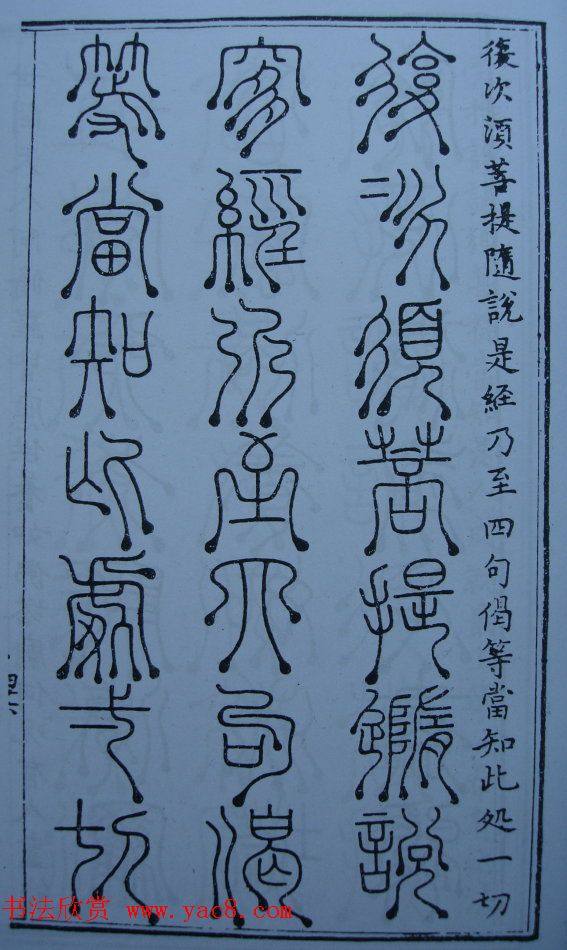 復次須菩提隨說是経乃至四句偈等當知此処一切
復次須菩提隨說
是經乃至四句偈
等當知此處一切
书法欣赏 www.yac8.com